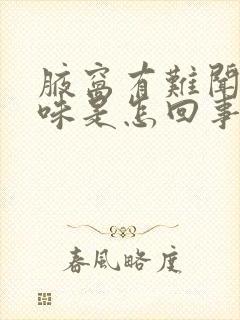 腋窩有難聞
味是怎回事
春風略度